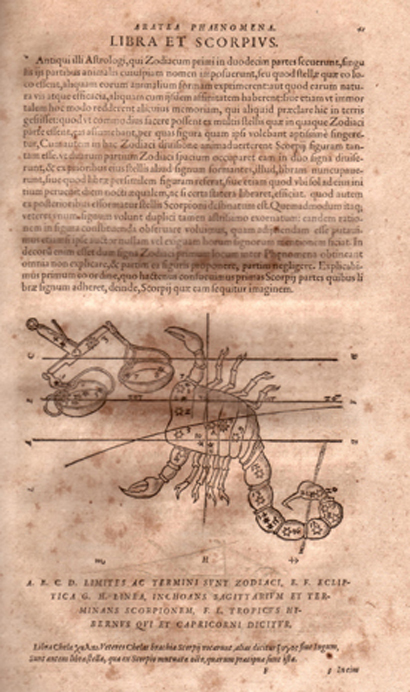 ARATEA PHAENOMENA. 61
LIBRA ET SCORPIVS.
Antiqui illi Astrologi, qui Zodiacum primi in duodecim partes secuerunt, singu
lis ijs partibus animalis cuiuspiam nomen imposuerunt, seu quod stellæ quæ eo lo-
co essent, aliquam eorum animalium formam exprimerent: aut quod earum natu-
ra vis atque efficacia, aliquam cum ipsis affinitatem haberent: siue etiam vt immor
talem hoc modo redderent alicuius memoriam, qui aliquid præclare hic in terris
gessisset: quod vt commodius facere possent ex multis stellis quæ in quaque Zodiaci
parte essent, eas assumebant, per quas figura quam ipsi volebant aptissime fingere-
tur, Cum autem in hac Zodiaci diuisione animaduerterent Scorpij figuram tan-
tam esse, vt duarum partium Zodiaci spacium occuparet eam in duo signa diuise-
runt, & ex prioribus eius stellis aliud signum formantes, illud, libram nuncupaue-
runt, siue quod libræ persimilem figuram referat, siue etiam quod vbi sol
tium
ex posterioribus efformatur stellis Scorpioni Quemadmodum itaq,
veteres vnum signum volunt duplici tamen asterismo exornatum: eandem ratio-
nem in figura constituenda obseruare voluimus, quam
mus etiamsi ipse auctor nusquam vel exiguam horum signorum mentionem faciat. In
esset dum signa Zodiaci primum locum inter Phænomena obtineant
omnia non explicare, & partim ea figuris proponere, partim negligere. Explicabi-
mus primum eo ordine, quo hactenus consueuimus primas Scorpij partes quibus li
bræ signum adhæret, deinde, Scorpij quæ eam sequitur imaginem.
♏ H ♐
A. B. C. D. LIMITES AC TERMINI SVNT ZODIACI, E. F. ECLIP-
TICA G. H. LINEA, INCHOANS SAGITTARIVM ET TER-
MINANS SCORPIONEM, F. I. TROPICVS HY-
BERNVS QVI ET CAPRICORNI DICITVR.
Libra Chelæ χηλαι. Veteres Chelas brachia Scorpij vocarunt, alias dicitur ζυγος siue Iugum,
Sunt autem libræ stellæ, quæ ex Scorpio mutuata
F